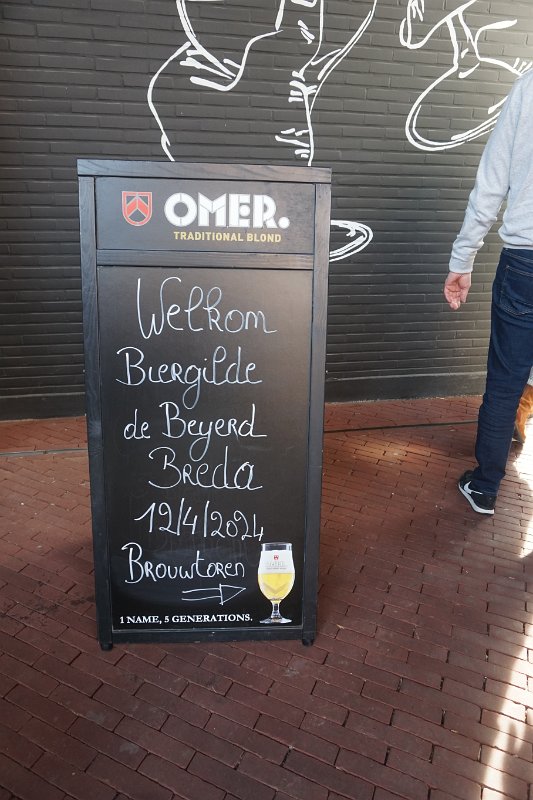 OMER.
TRADITIONAL BLOND
Welkom
Biergilde
de Beyerd
Breda
12/4/2024
Brouwtoren
OMER.
1 NAME, 5 GENERATIONS.